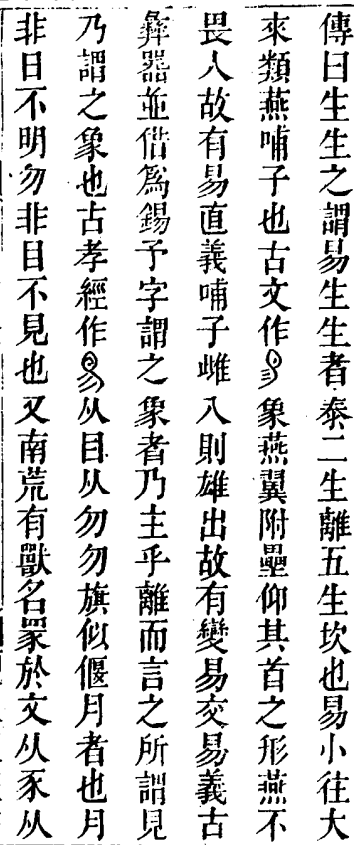 傳曰生生之謂易生生者泰二生離五生坎也易小往大
來類燕哺子也古文作象燕翼附壘仰其首之形燕不
畏人故有易直義哺子雌入則雄出故有變易交易義古
彝器並借爲錫予字謂之象者乃主乎離而言之所謂見
乃謂之象也古孝經作从目从勿勿旗似偃月者也月
非日不明勿非目不見也又南荒有獸名爲於文从豕从